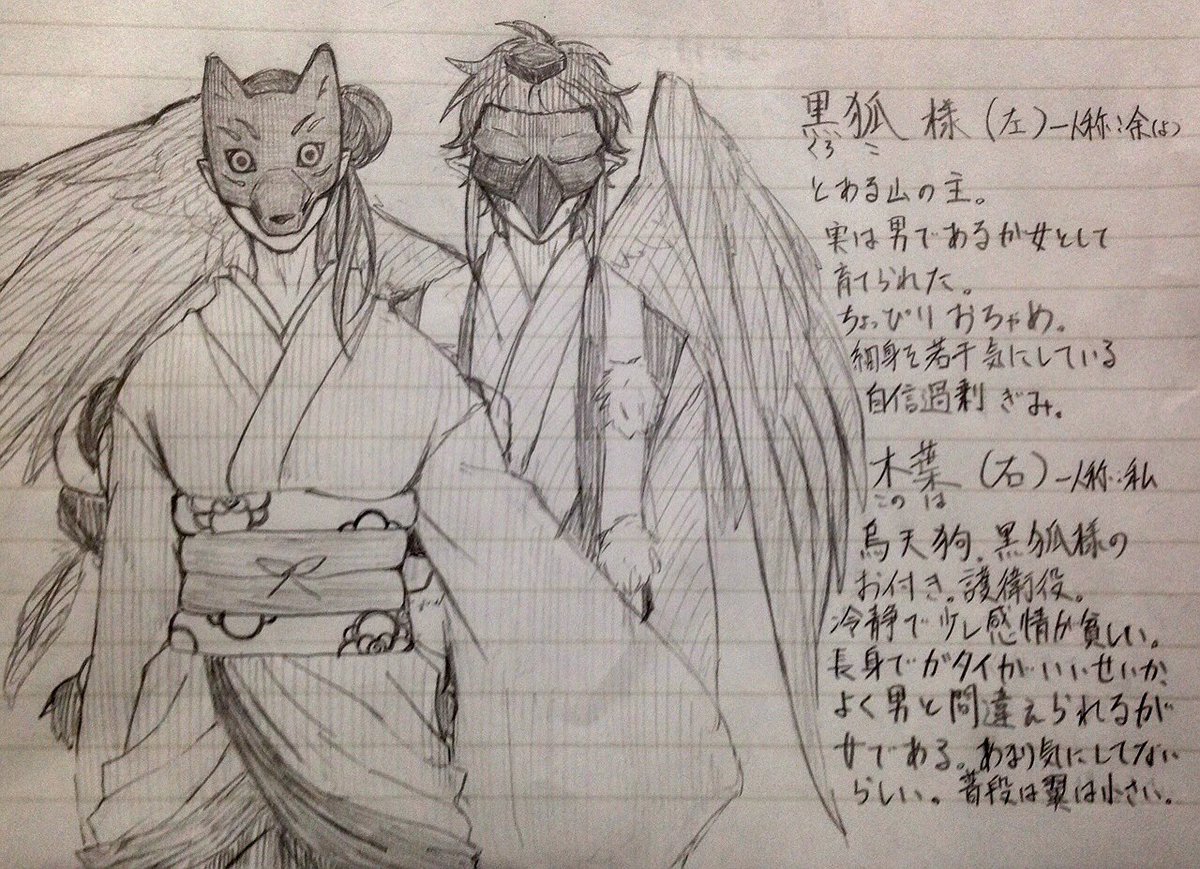 黒狐様(左)一人称:余(よ)
くろこ
とある山の主。
実は男であるが女として
育てられた。
ちょっぴりおちゃめ。
細身を若干気にしている
自信過剰ぎみ。
木葉(右)一人称:私
このは
烏天狗。黒狐様の
お付き。護衛役。
冷静で少し感情が貧しい。
長身でガタイがいいせいか、
よく男と間違えられるが
女である。あまり気にしてない
らしい。普段は翼は小さい。